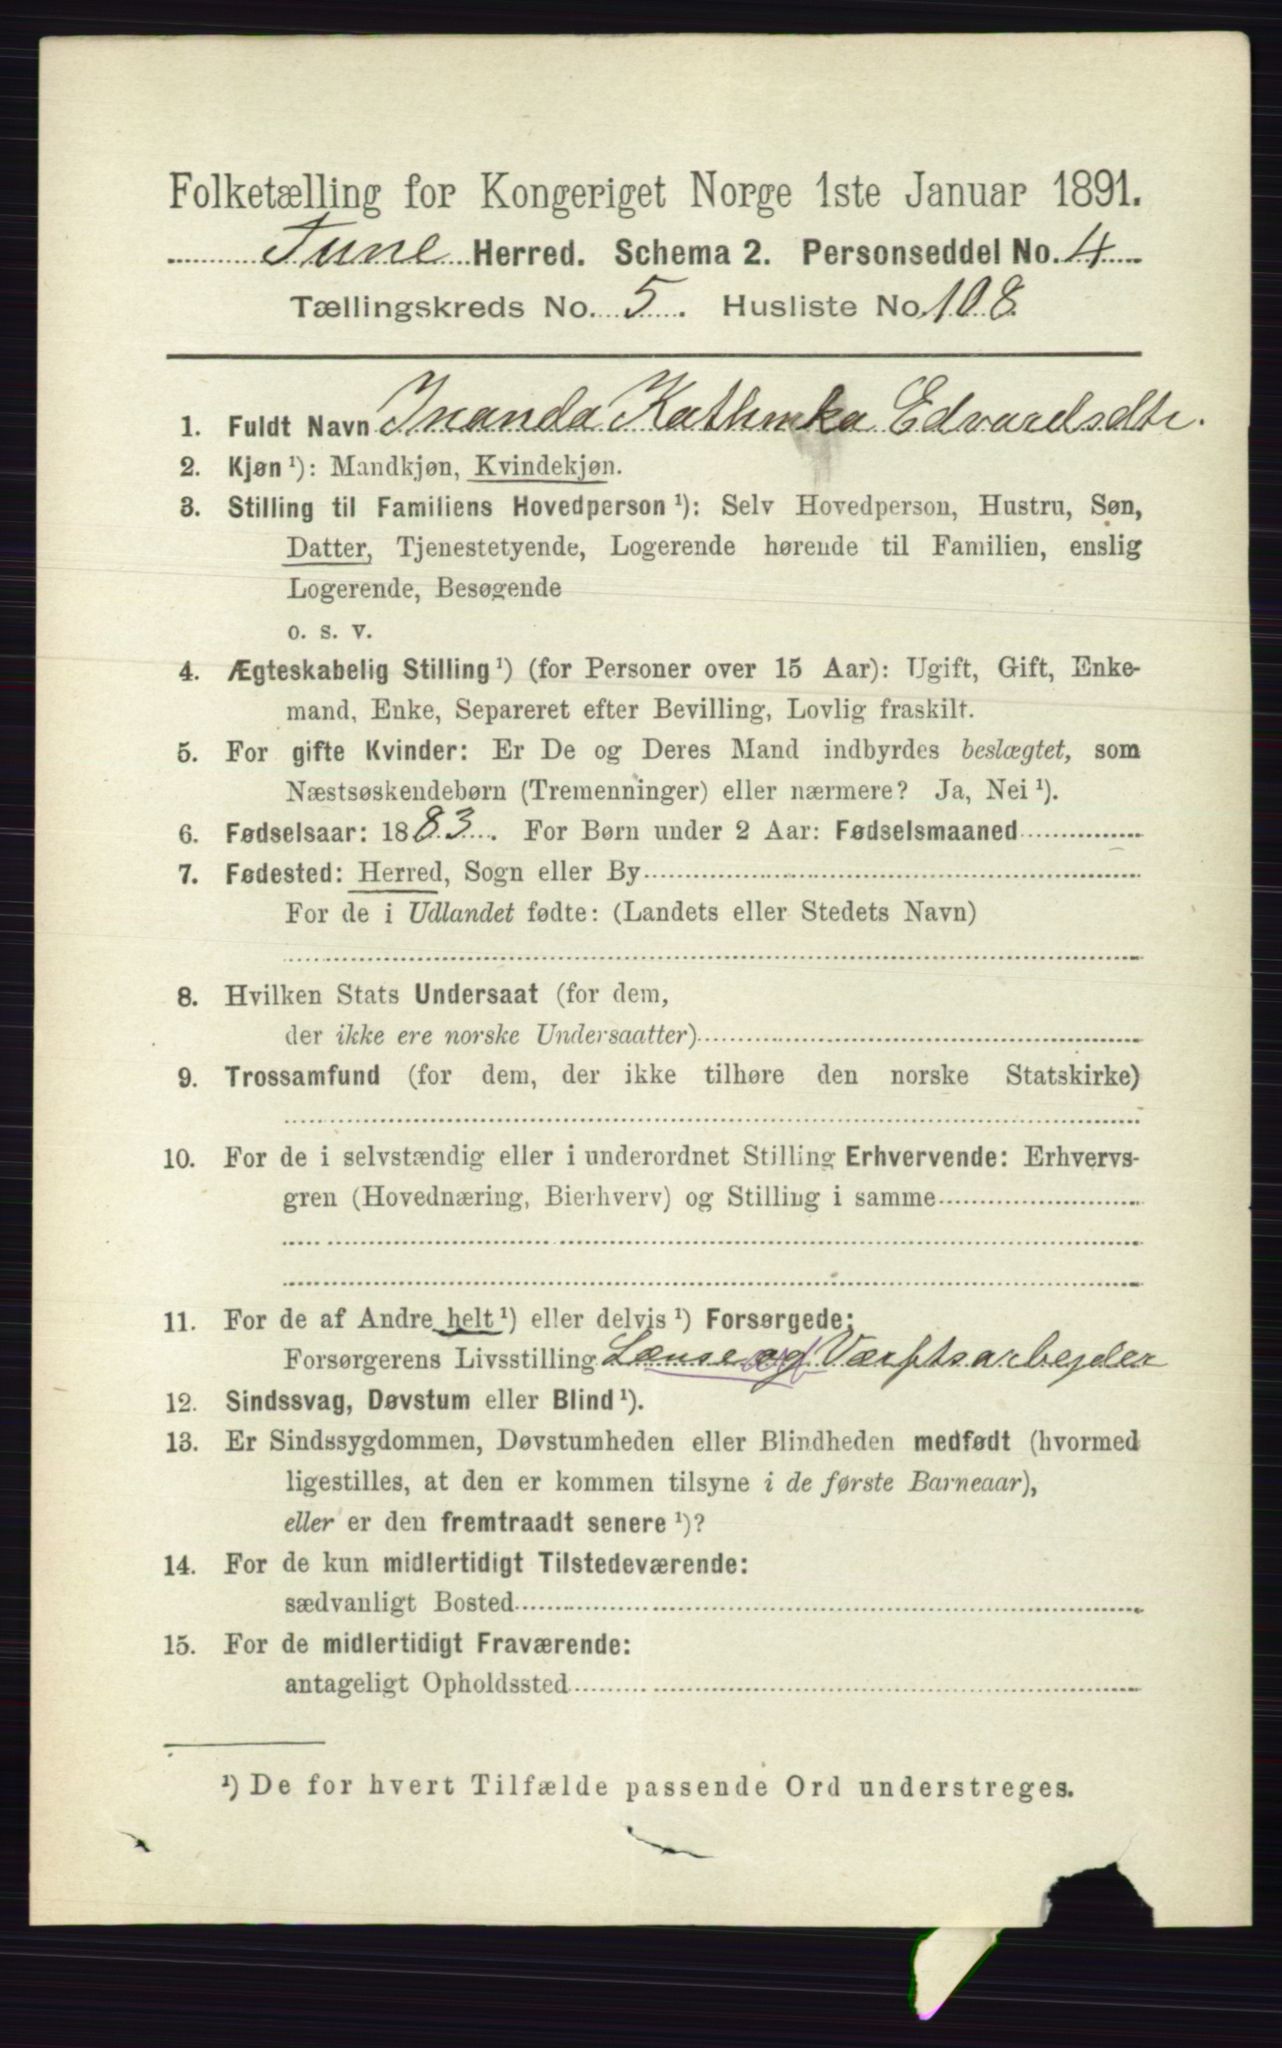 Folketælling for Kongeriget Norge 1ste Januar 1891.
Tune Herred. Schema 2. Personseddel No. 4
Tællingskreds No. 5. Husliste No. 108
1. Fuldt Navn Inanda Kathinka Edvardsdtr.
2. Kjøn ¹): Mandkjøn, Kvindekjøn.
3. Stilling til Familiens Hovedperson ¹): Selv Hovedperson, Hustru, Søn,
Datter, Tjenestetyende, Logerende hørende til Familien, enslig
Logerende, Besøgende
o. s. v.
4. Ægteskabelig Stilling ¹) (for Personer over 15 Aar): Ugift, Gift, Enke-
mand, Enke, Separeret efter Bevilling, Lovlig fraskilt.
5. For gifte Kvinder: Er De og Deres Mand indbyrdes beslægtet, som
Næstsøskendebørn (Tremenninger) eller nærmere? Ja, Nei ¹).
6. Fødselsaar: 1883. For Børn under 2 Aar: Fødselsmaaned
7. Fødested: Herred, Sogn eller By
For de i Udlandet fødte: (Landets eller Stedets Navn)
8. Hvilken Stats Undersaat (for dem,
der ikke ere norske Undersaatter)
9. Trossamfund (for dem, der ikke tilhøre den norske Statskirke)
10. For de i selvstændig eller i underordnet Stilling Erhvervende: Erhvervs-
gren (Hovednæring, Bierhverv) og Stilling i samme
11. For de af Andre helt ¹) eller delvis ¹) Forsørgede:
Forsørgerens Livsstilling Lænse og Værftsarbejder
12. Sindssvag, Døvstum eller Blind ¹).
13. Er Sindssygdommen, Døvstumheden eller Blindheden medfødt (hvormed
ligestilles, at den er kommen tilsyne i de første Barneaar),
eller er den fremtraadt senere ¹)?
14. For de kun midlertidigt Tilstedeværende:
sædvanligt Bosted
15. For de midlertidigt Fraværende:
antageligt Opholdssted
¹) De for hvert Tilfælde passende Ord understreges.